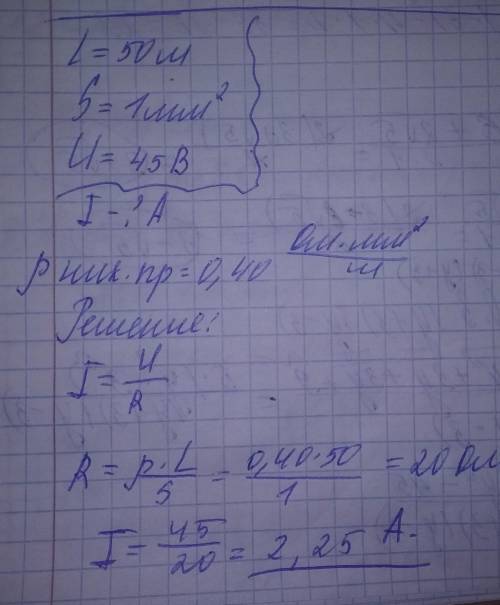 L = 50 м
S = 1 мм²
U = 45 В
I - ? А
ρ ник. пр = 0,40 Ом·мм²/м
Решение:
I = U/R
R = ρ·L/S = 0,40·50/1 = 20 Ом
I = 45/20 = 2,25 А.